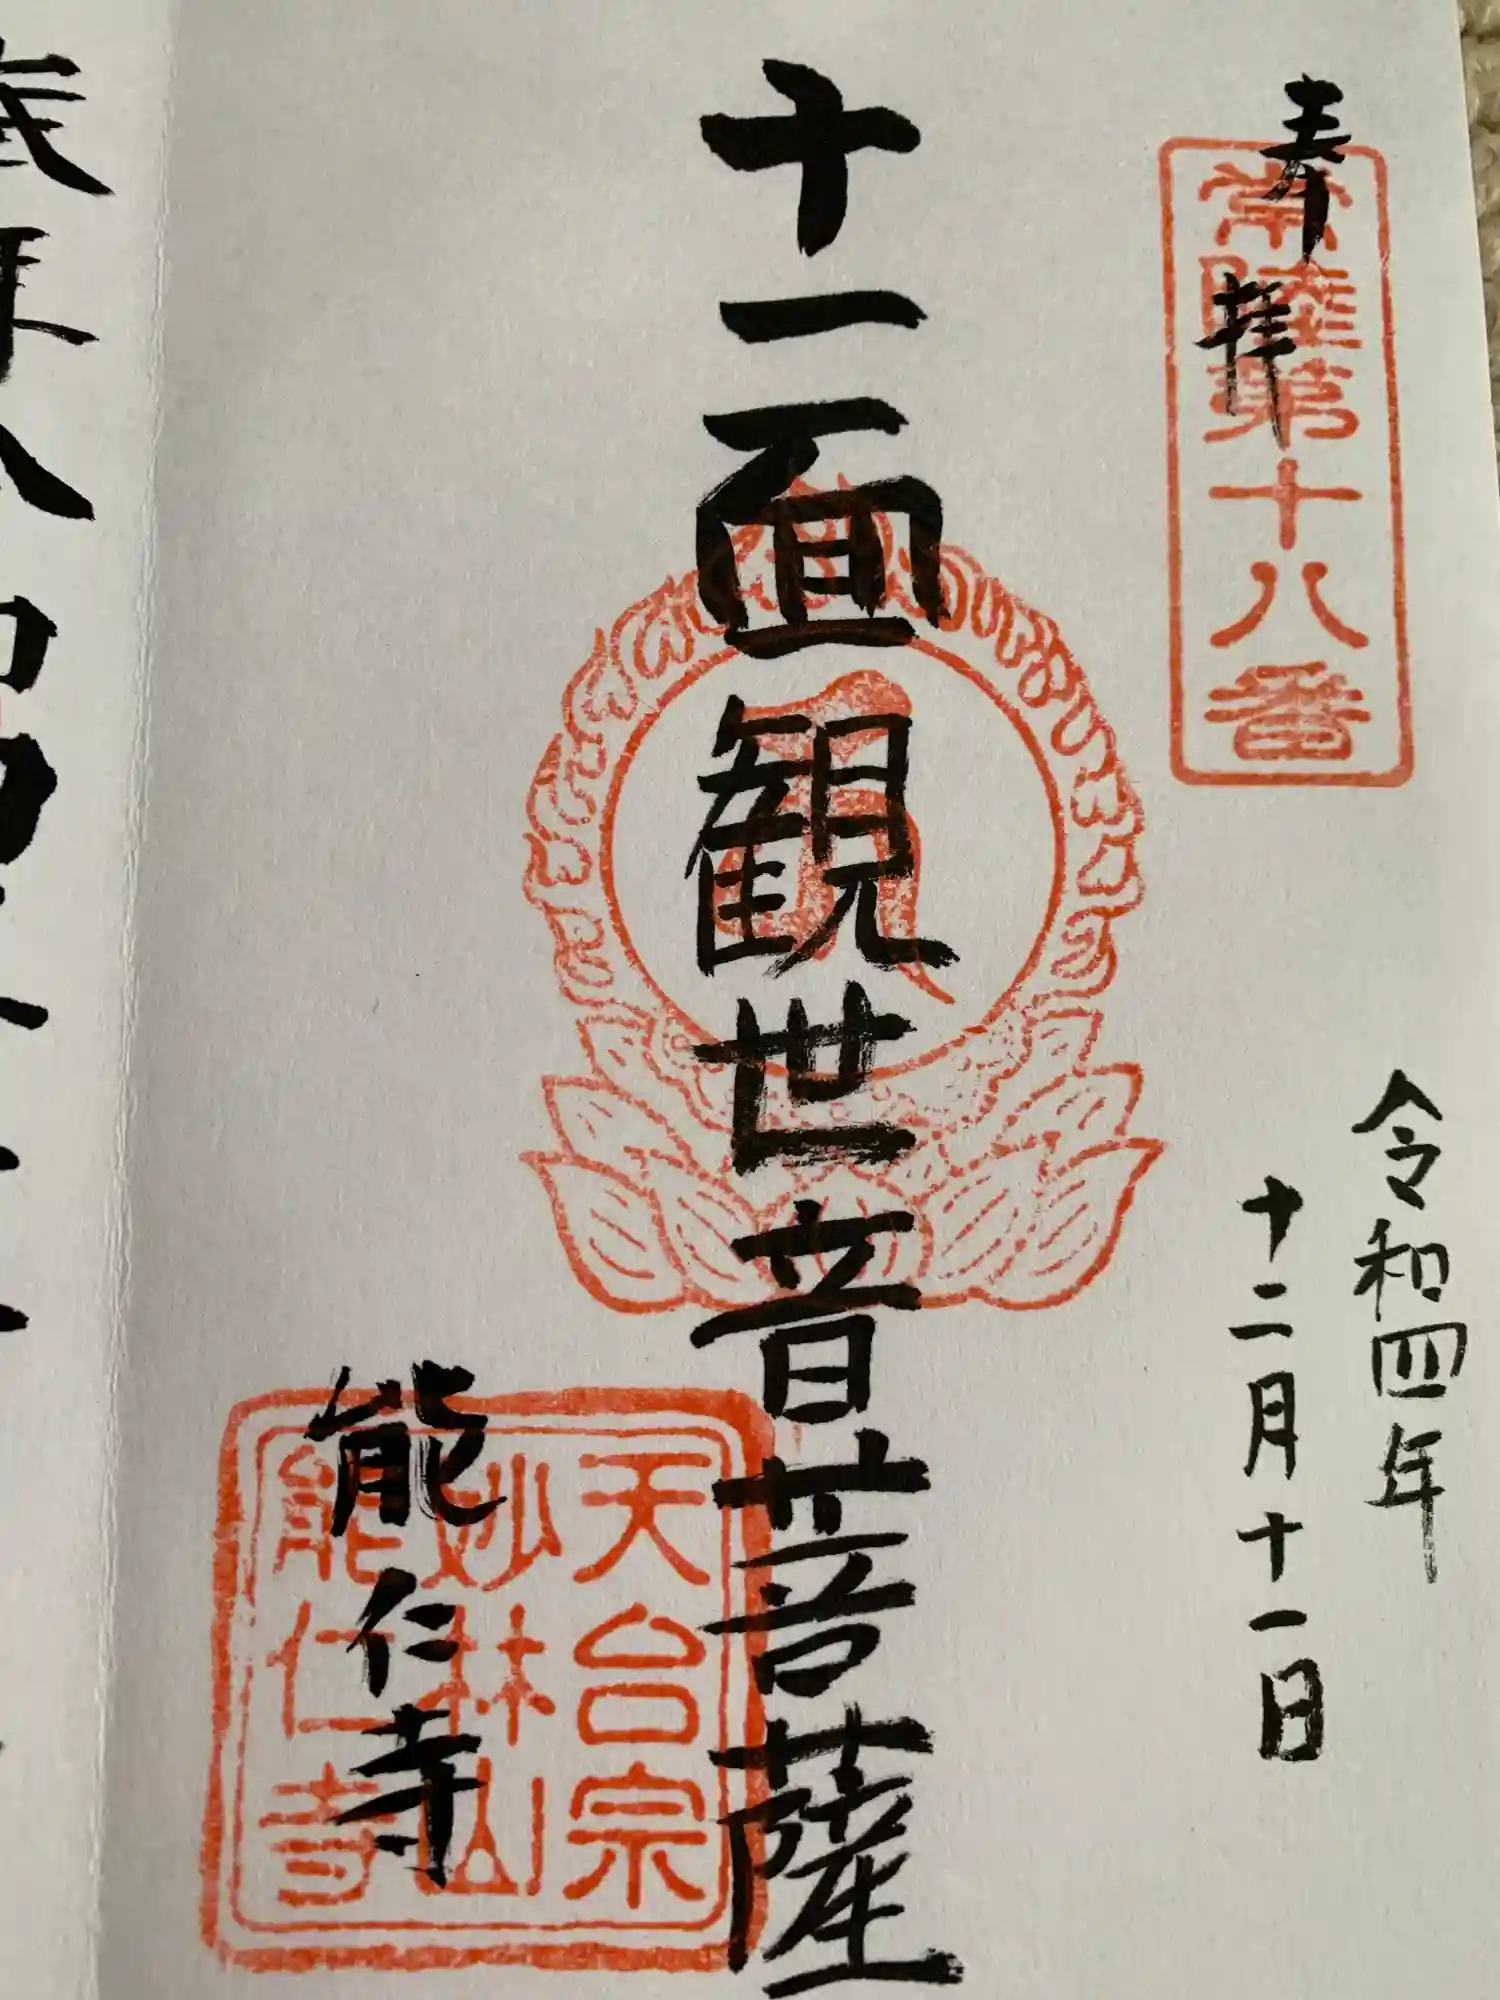 奉拝
常陸第十八番
令和四年
十二月十一日
十一面観世音菩薩
天台宗
妙林山
能仁寺
能仁寺